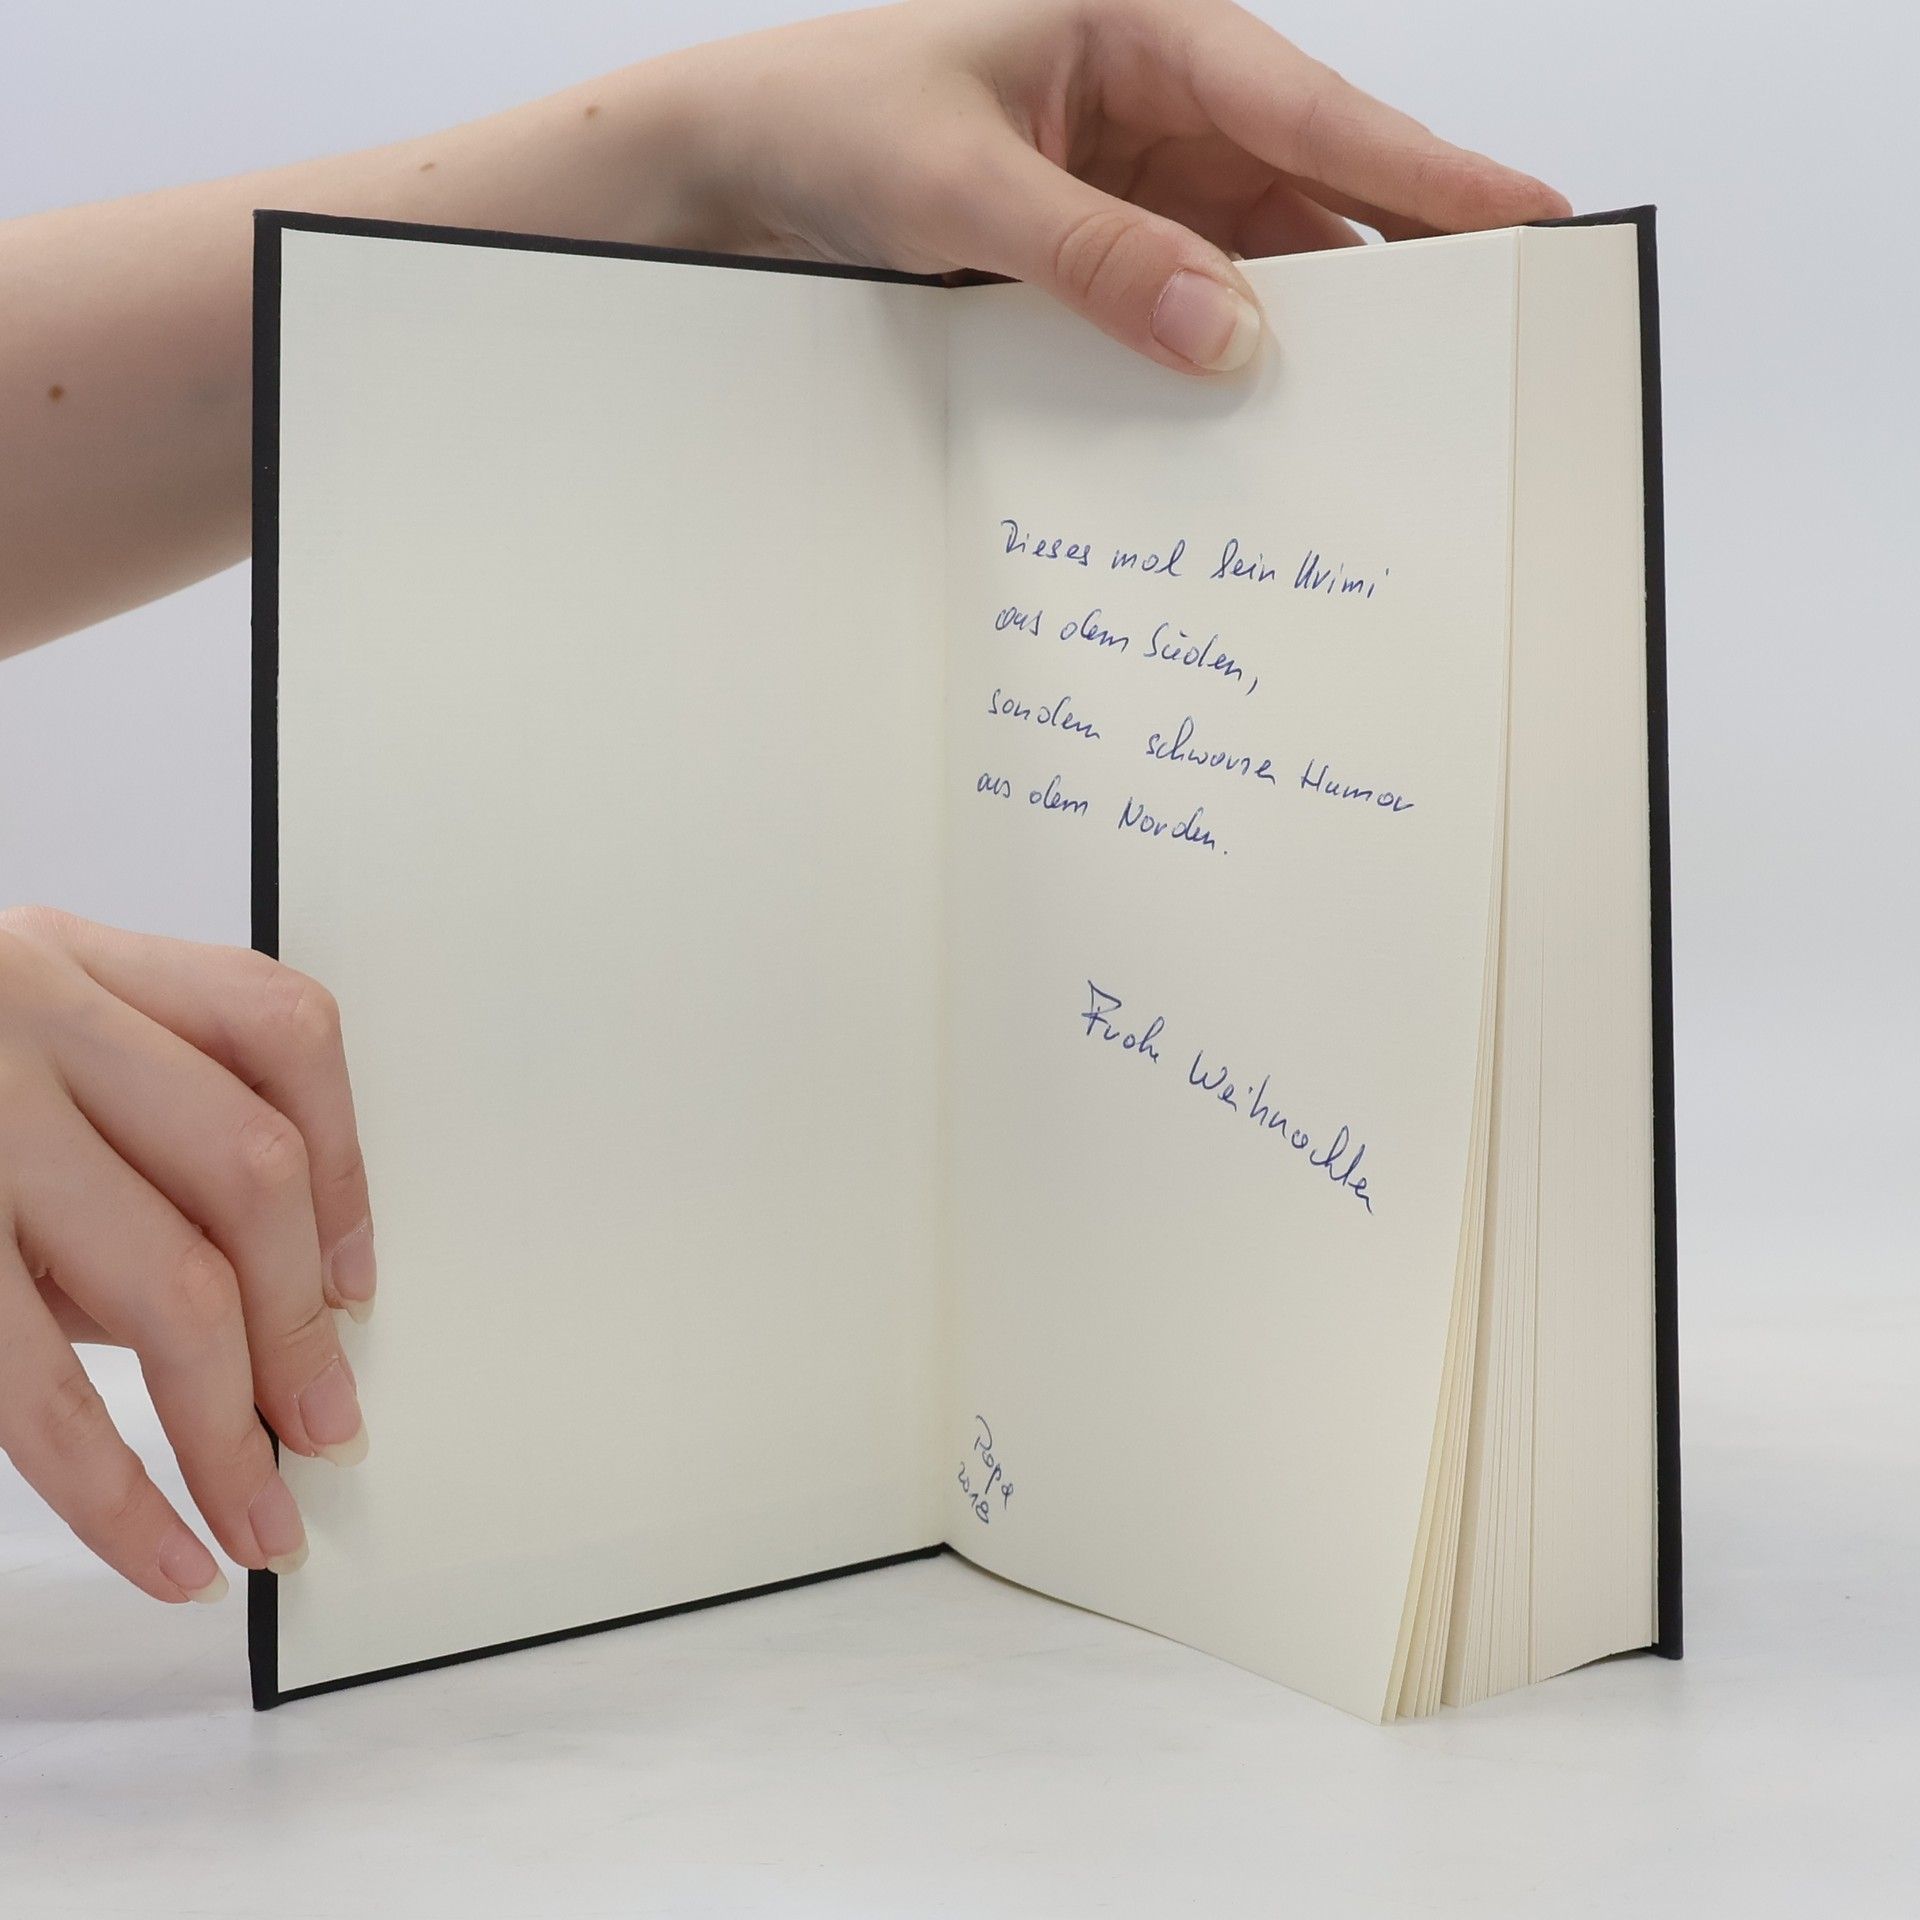 Dieses mal kein Krimi
aus dem Süden,
sondern schwarzer Humor
aus dem Norden.
Frohe Weihnachten
Papa
2018